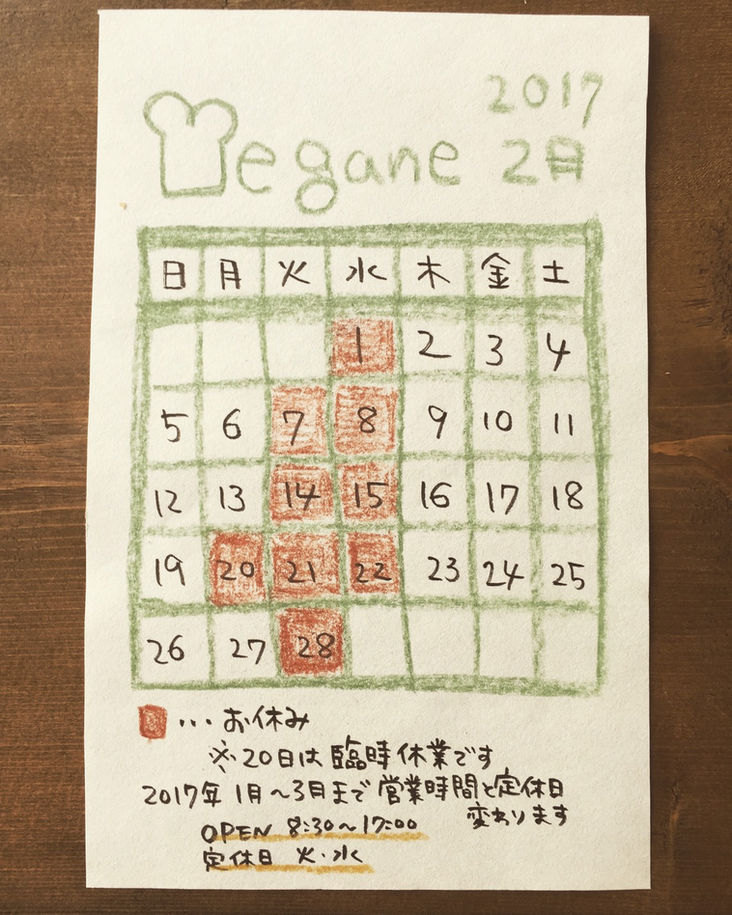 2017
megane 2月
日 月 火 水 木 金 土
1 2 3 4
5 6 7 8 9 10 11
12 13 14 15 16 17 18
19 20 21 22 23 24 25
26 27 28
・・・お休み
※20日は臨時休業です
2017年1月～3月まで営業時間と定休日
変わります
OPEN 8:30～17:00
定休日 火・水